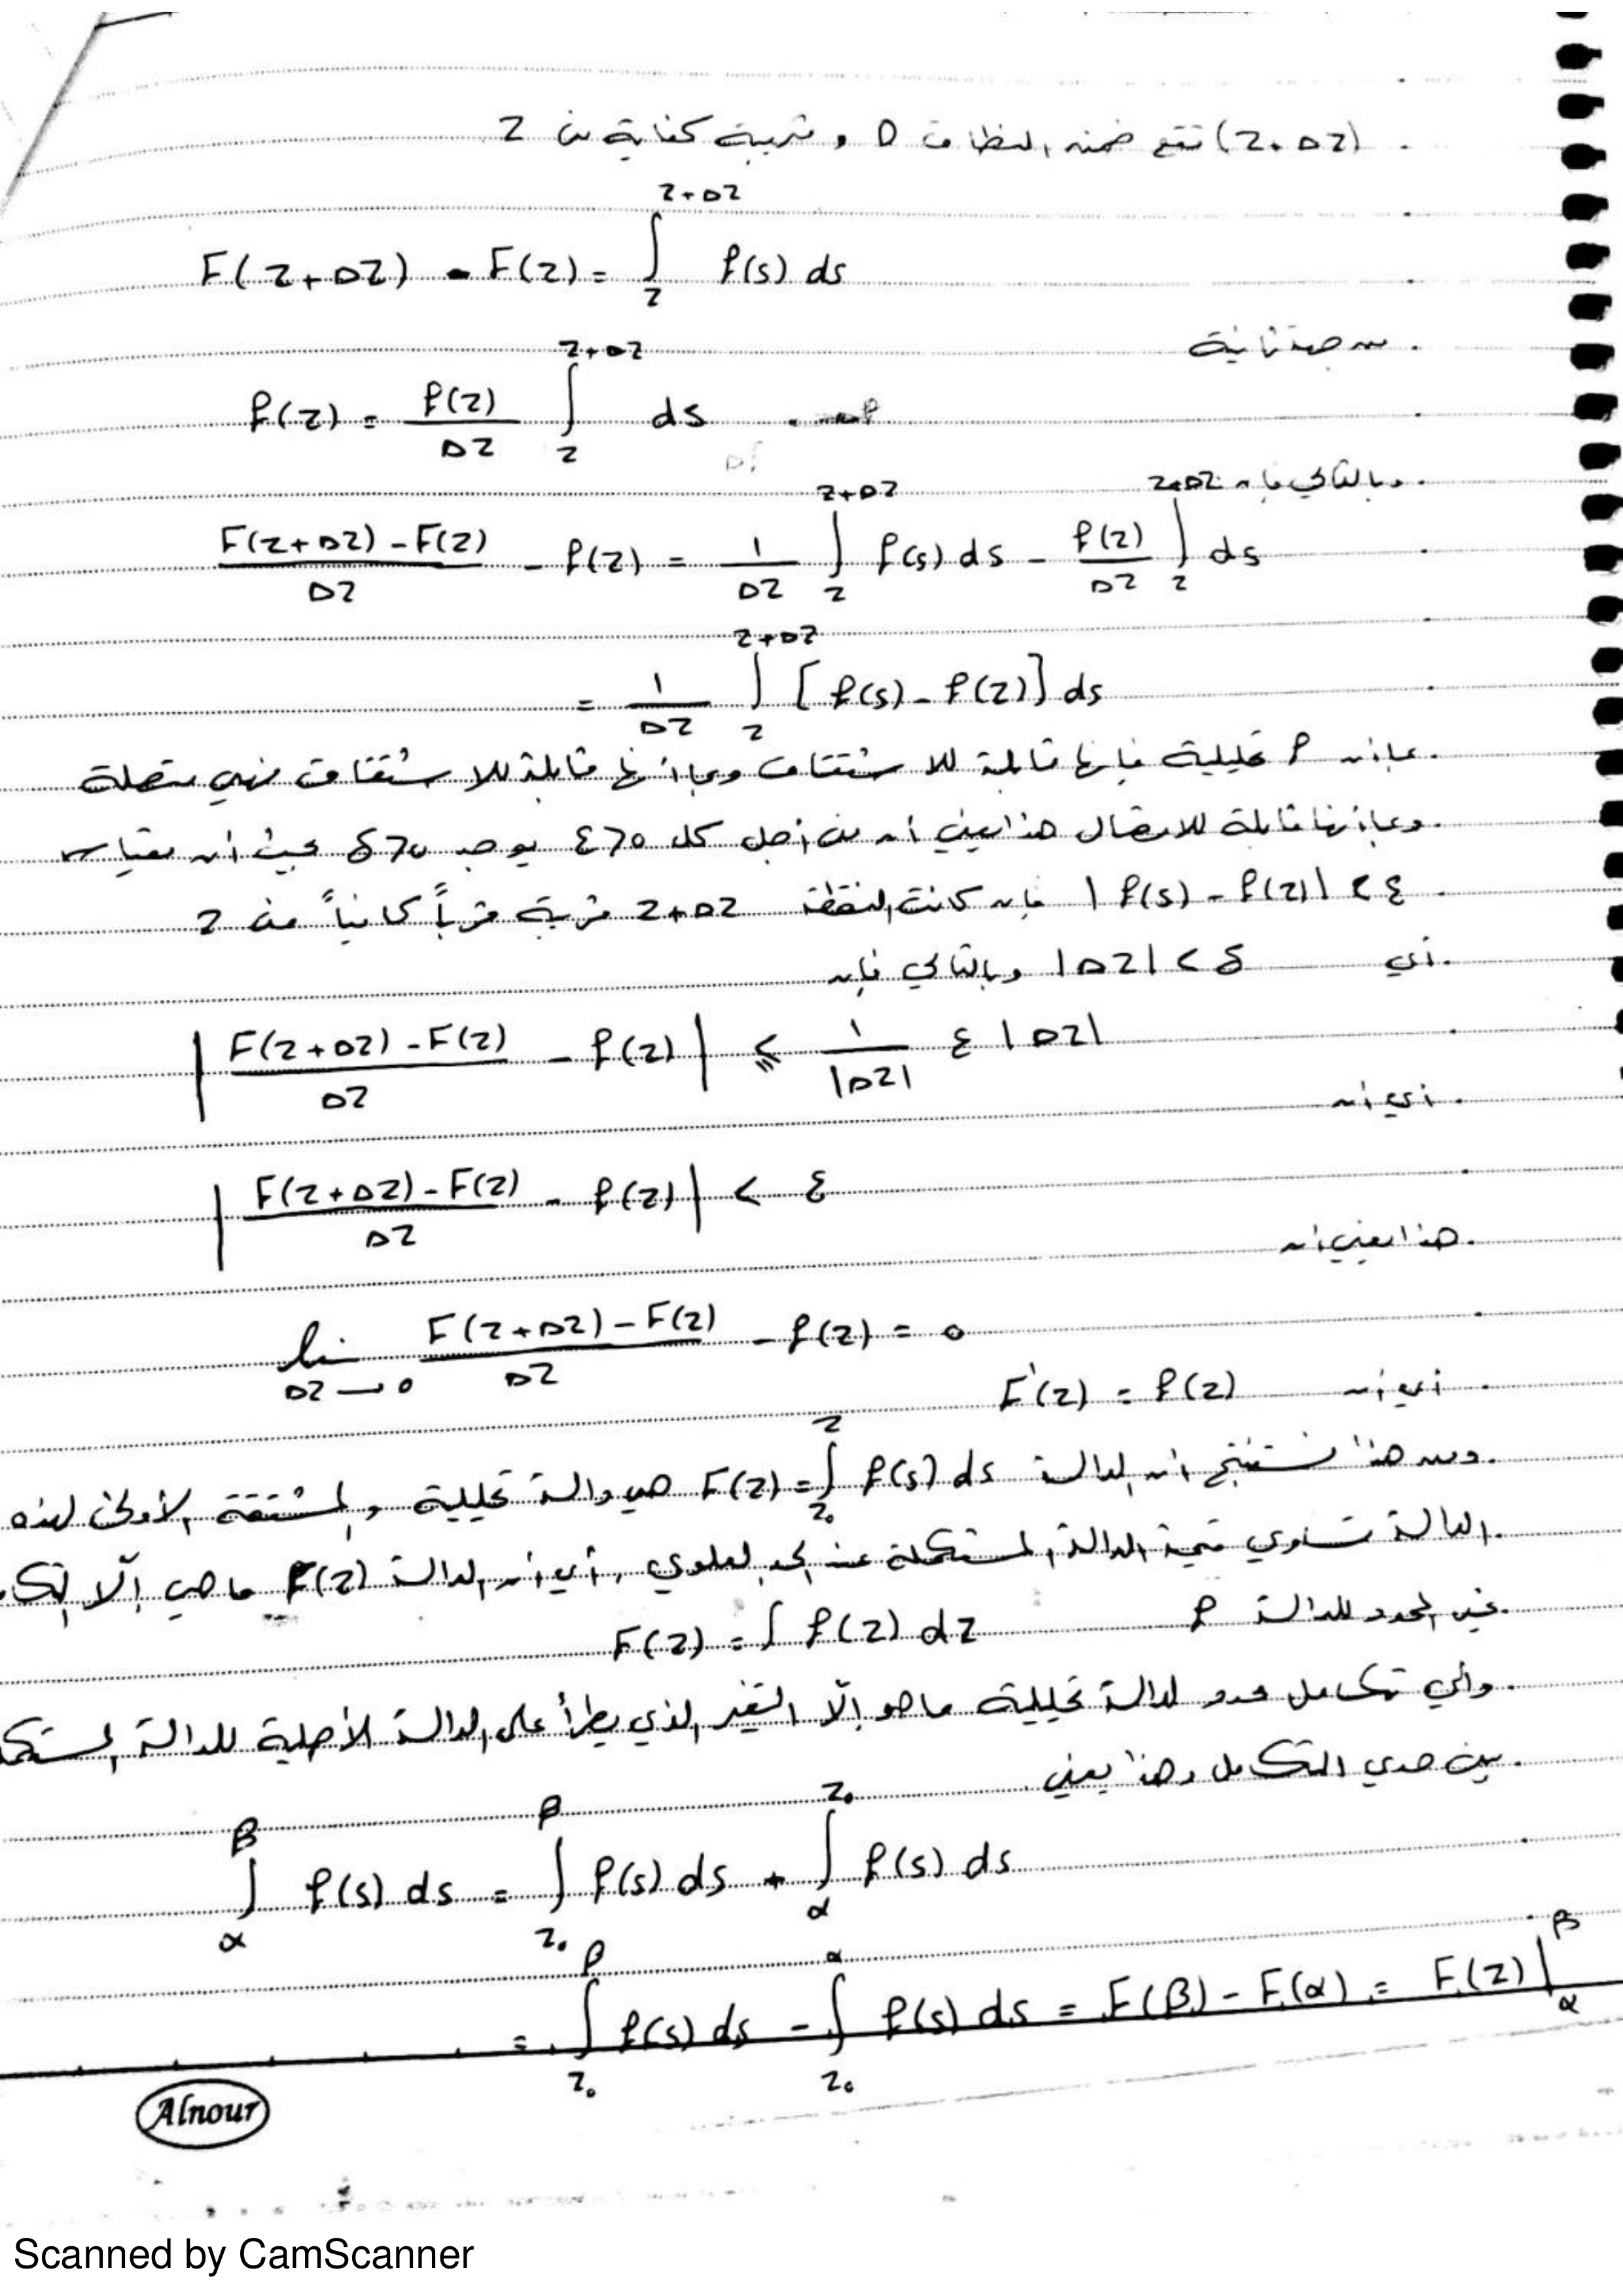 (z+Δz) تقع ضمن النطاق D وقريبة كفاية من z
F(z+Δz) - F(z) = ∫_z^{z+Δz} f(s) ds
من جهة ثانية
f(z) = f(z)/Δz ∫_z^{z+Δz} ds
وبالتالي فإن
(F(z+Δz) - F(z))/Δz - f(z) = 1/Δz ∫_z^{z+Δz} f(s) ds - f(z)/Δz ∫_z^{z+Δz} ds
= 1/Δz ∫_z^{z+Δz} [f(s) - f(z)] ds
بما أن f تحليلية فإنها قابلة للاشتقاق وبما أنها قابلة للاشتقاق فهي متصلة
وبما أنها قابلة للاتصال هذا يعني أنه من أجل كل ε>0 يوجد δ>0 بحيث أن
|f(s) - f(z)| < ε فإن كانت النقطة z+Δz قريبة قرباً كافياً من z
أي |Δz| < δ وبالتالي فإن
|(F(z+Δz) - F(z))/Δz - f(z)| ≤ 1/|Δz| ε |Δz|
أي أن
|(F(z+Δz) - F(z))/Δz - f(z)| < ε
هذا يعني أن
lim_{Δz→0} (F(z+Δz) - F(z))/Δz - f(z) = 0
أي أن F'(z) = f(z)
ومن هذا نستنتج أن الدالة F(z) = ∫_{z₀}^z f(s) ds هي دالة تحليلية والمشتقة الأولى لهذه
الدالة تساوي قيمة الدالة المستكملة عند الحد العلوي، أي أن الدالة F(z) ما هي إلّا
غير المحدد للدالة f F(z) = ∫ f(z) dz
وأي تكامل محدد لدالة تحليلية ما هو إلّا التغير الذي يطرأ على الدالة الأصلية للدالة
بين حدي التكامل وهذا يعني
∫_α^β f(s) ds = ∫_{z₀}^β f(s) ds + ∫_α^{z₀} f(s) ds
= ∫_{z₀}^β f(s) ds - ∫_{z₀}^α f(s) ds = F(β) - F(α) = F(z)|_α^β
Alnour
Scanned by CamScanner